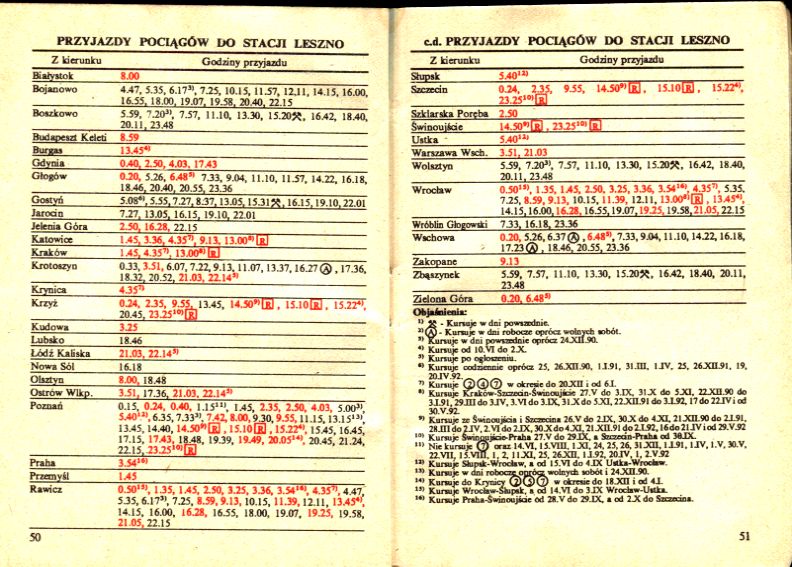 PRZYJAZDY POCIĄGÓW DO STACJI LESZNO
Z kierunku Godziny przyjazdu
Białystok 8.00
Bojanowo 4.47, 5.35, 6.17³⁾, 7.25, 10.15, 11.57, 12.11, 14.15, 16.00,
16.55, 18.00, 19.07, 19.58, 20.40, 22.15
Boszkowo 5.59, 7.20³⁾, 7.57, 11.10, 13.30, 15.20⚒, 16.42, 18.40,
20.11, 23.48
Budapeszt Keleti 8.59
Burgas 13.45⁴⁾
Gdynia 0.40, 2.50, 4.03, 17.43
Głogów 0.20, 5.26, 6.48⁵⁾ 7.33, 9.04, 11.10, 11.57, 14.22, 16.18,
18.46, 20.40, 20.55, 23.36
Gostyń 5.08⁶⁾, 5.55, 7.27, 8.37, 13.05, 15.31⚒, 16.15, 19.10, 22.01
Jarocin 7.27, 13.05, 16.15, 19.10, 22.01
Jelenia Góra 2.50, 16.28, 22.15
Katowice 1.45, 3.36, 4.35⁷⁾, 9.13, 13.00⁸⁾ R
Kraków 1.45, 4.35⁷⁾, 13.00⁸⁾ R
Krotoszyn 0.33, 3.51, 6.07, 7.22, 9.13, 11.07, 13.37, 16.27 Ⓐ, 17.36,
18.32, 20.52, 21.03, 22.14⁵⁾
Krynica 4.35⁷⁾
Krzyż 0.24, 2.35, 9.55, 13.45, 14.50⁹⁾ R, 15.10 R, 15.22⁴⁾,
20.45, 23.25¹⁰⁾ R
Kudowa 3.25
Lubsko 18.46
Łódź Kaliska 21.03, 22.14⁵⁾
Nowa Sól 16.18
Olsztyn 8.00, 18.48
Ostrów Wlkp. 3.51, 17.36, 21.03, 22.14⁵⁾
Poznań 0.15, 0.24, 0.40, 1.15¹¹⁾, 1.45, 2.35, 2.50, 4.03, 5.00³⁾,
5.40¹²⁾, 6.35, 7.33³⁾, 7.42, 8.00, 9.30, 9.55, 11.15, 13.15¹³⁾,
13.45, 14.40, 14.50⁹⁾ R, 15.10 R, 15.22⁴⁾, 15.45, 16.45,
17.15, 17.43, 18.48, 19.39, 19.49, 20.05¹⁴⁾, 20.45, 21.24,
22.15, 23.25¹⁰⁾ R
Praha 3.54¹⁶⁾
Przemyśl 1.45
Rawicz 0.50¹⁵⁾, 1.35, 1.45, 2.50, 3.25, 3.36, 3.54¹⁶⁾, 4.35⁷⁾, 4.47,
5.35, 6.17³⁾, 7.25, 8.59, 9.13, 10.15, 11.39, 12.11, 13.45⁴⁾,
14.15, 16.00, 16.28, 16.55, 18.00, 19.07, 19.25, 19.58,
21.05, 22.15
50
c.d. PRZYJAZDY POCIĄGÓW DO STACJI LESZNO
Z kierunku Godziny przyjazdu
Słupsk 5.40¹²⁾
Szczecin 0.24, 2.35, 9.55, 14.50⁹⁾ R, 15.10 R, 15.22⁴⁾,
23.25¹⁰⁾ R
Szklarska Poręba 2.50
Świnoujście 14.50⁹⁾ R, 23.25¹⁰⁾ R
Ustka 5.40¹²⁾
Warszawa Wsch. 3.51, 21.03
Wolsztyn 5.59, 7.20³⁾, 7.57, 11.10, 13.30, 15.20⚒, 16.42, 18.40,
20.11, 23.48
Wrocław 0.50¹⁵⁾, 1.35, 1.45, 2.50, 3.25, 3.36, 3.54¹⁶⁾, 4.35⁷⁾, 5.35,
7.25, 8.59, 9.13, 10.15, 11.39, 12.11, 13.00⁸⁾ R, 13.45⁴⁾,
14.15, 16.00, 16.28, 16.55, 19.07, 19.25, 19.58, 21.05, 22.15
Wróblin Głogowski 7.33, 16.18, 23.36
Wschowa 0.20, 5.26, 6.37 Ⓐ, 6.48⁵⁾, 7.33, 9.04, 11.10, 14.22, 16.18,
17.23 Ⓐ, 18.46, 20.55, 23.36
Zakopane 9.13
Zbąszynek 5.59, 7.57, 11.10, 13.30, 15.20⚒, 16.42, 18.40, 20.11,
23.48
Zielona Góra 0.20, 6.48⁵⁾
Objaśnienia:
¹⁾ ⚒ - Kursuje w dni powszednie.
²⁾ Ⓐ - Kursuje w dni robocze oprócz wolnych sobót.
³⁾ Kursuje w dni powszednie oprócz 24.XII.90.
⁴⁾ Kursuje od 10.VI do 2.X.
⁵⁾ Kursuje po ogłoszeniu.
⁶⁾ Kursuje codziennie oprócz 25, 26.XII.90, 1.I.91, 31.III, 1.IV, 25, 26.XII.91, 19,
20.IV.92.
⁷⁾ Kursuje ②④⑦ w okresie do 20.XII i od 6.I.
⁸⁾ Kursuje Kraków-Szczecin-Świnoujście 27.V do 3.IX, 31.X do 5.XI, 22.XII.90 do
3.I.91, 29.III do 3.IV, 3.VI do 3.IX, 31.X do 5.XI, 22.XII.91 do 3.I.92, 17 do 22.IV i od
30.V.92.
⁹⁾ Kursuje ze Świnoujścia i Szczecina 26.V do 2.IX, 30.X do 4.XI, 21.XII.90 do 2.I.91,
28.III do 2.IV, 2.VI do 2.IX, 30.X do 4.XI, 21.XII.91 do 2.I.92, 16 do 21.IV i od 29.V.92
¹⁰⁾ Kursuje Świnoujście-Praha 27.V do 29.IX, a Szczecin-Praha od 30.IX.
¹¹⁾ Nie kursuje ⑦ oraz 14.VI, 15.VIII, 1.XI, 24, 25, 26, 31.XII, 1.I.91, 1.IV, 1.V, 30.V,
22.VII, 15.VIII, 1, 2, 11.XI, 25, 26.XII, 1.I.92, 20.IV, 1, 2.V.92
¹²⁾ Kursuje Słupsk-Wrocław, a od 15.VI do 4.IX Ustka-Wrocław.
¹³⁾ Kursuje w dni robocze oprócz wolnych sobót i 24.XII.90.
¹⁴⁾ Kursuje do Krynicy ②⑤⑦ w okresie do 18.XII i od 4.I.
¹⁵⁾ Kursuje Wrocław-Słupsk, a od 14.VI do 3.IX Wrocław-Ustka.
¹⁶⁾ Kursuje Praha-Świnoujście od 28.V do 29.IX, a od 2.X do Szczecina.
51